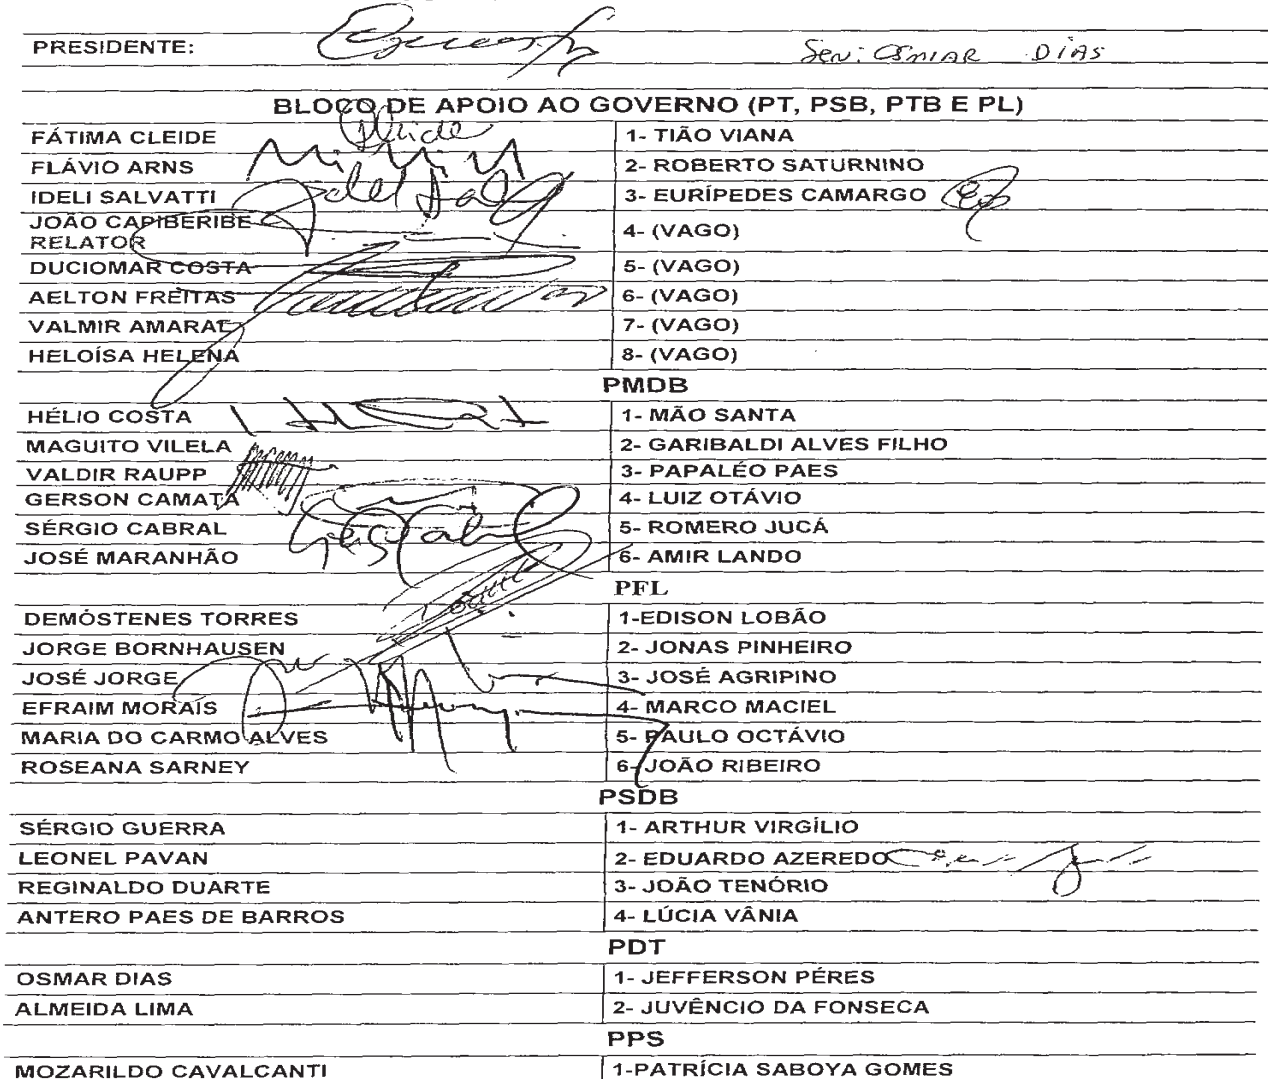 PRESIDENTE: Sen: OSMAR DIAS
BLOCO DE APOIO AO GOVERNO (PT, PSB, PTB E PL)
FÁTIMA CLEIDE 1- TIÃO VIANA
FLÁVIO ARNS 2- ROBERTO SATURNINO
IDELI SALVATTI 3- EURÍPEDES CAMARGO
JOÃO CAPIBERIBE 4- (VAGO)
RELATOR
DUCIOMAR COSTA 5- (VAGO)
AELTON FREITAS 6- (VAGO)
VALMIR AMARAL 7- (VAGO)
HELOÍSA HELENA 8- (VAGO)
PMDB
HÉLIO COSTA 1- MÃO SANTA
MAGUITO VILELA 2- GARIBALDI ALVES FILHO
VALDIR RAUPP 3- PAPALÉO PAES
GERSON CAMATA 4- LUIZ OTÁVIO
SÉRGIO CABRAL 5- ROMERO JUCÁ
JOSÉ MARANHÃO 6- AMIR LANDO
PFL
DEMÓSTENES TORRES 1-EDISON LOBÃO
JORGE BORNHAUSEN 2- JONAS PINHEIRO
JOSÉ JORGE 3- JOSÉ AGRIPINO
EFRAIM MORAIS 4- MARCO MACIEL
MARIA DO CARMO ALVES 5- PAULO OCTÁVIO
ROSEANA SARNEY 6-JOÃO RIBEIRO
PSDB
SÉRGIO GUERRA 1- ARTHUR VIRGÍLIO
LEONEL PAVAN 2- EDUARDO AZEREDO
REGINALDO DUARTE 3- JOÃO TENÓRIO
ANTERO PAES DE BARROS 4- LÚCIA VÂNIA
PDT
OSMAR DIAS 1- JEFFERSON PÉRES
ALMEIDA LIMA 2- JUVÊNCIO DA FONSECA
PPS
MOZARILDO CAVALCANTI 1-PATRÍCIA SABOYA GOMES